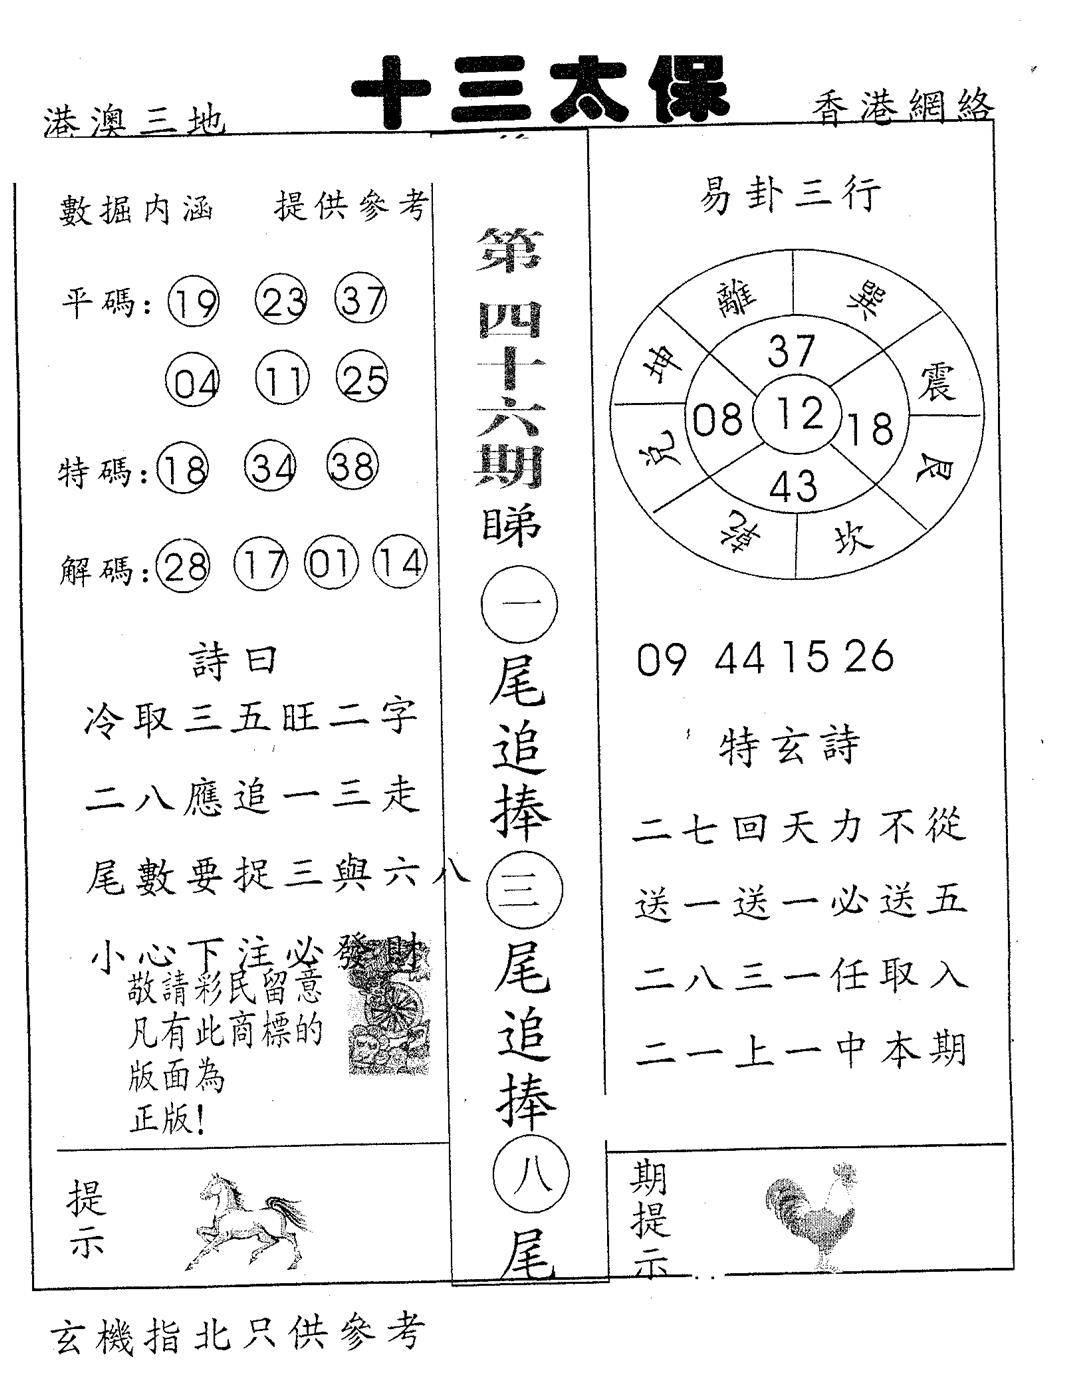 十三太保
港澳三地
香港網絡
數掘内涵 提供參考
平碼: 19 23 37
04 11 25
特碼: 18 34 38
解碼: 28 17 01 14
詩曰
冷取三五旺二字
二八應追一三走
尾數要捉三與六八
小心下注必發財
敬請彩民留意
凡有此商標的
版面為
正版!
提示
第四十六期睇一尾追捧三尾追捧八尾
易卦三行
離 巽
坤 37 震
08 12 18
兌 43 艮
乾 坎
09 44 15 26
特玄詩
二七回天力不從
送一送一必送五
二八三一任取入
二一上一中本期
期提示
玄機指北只供參考